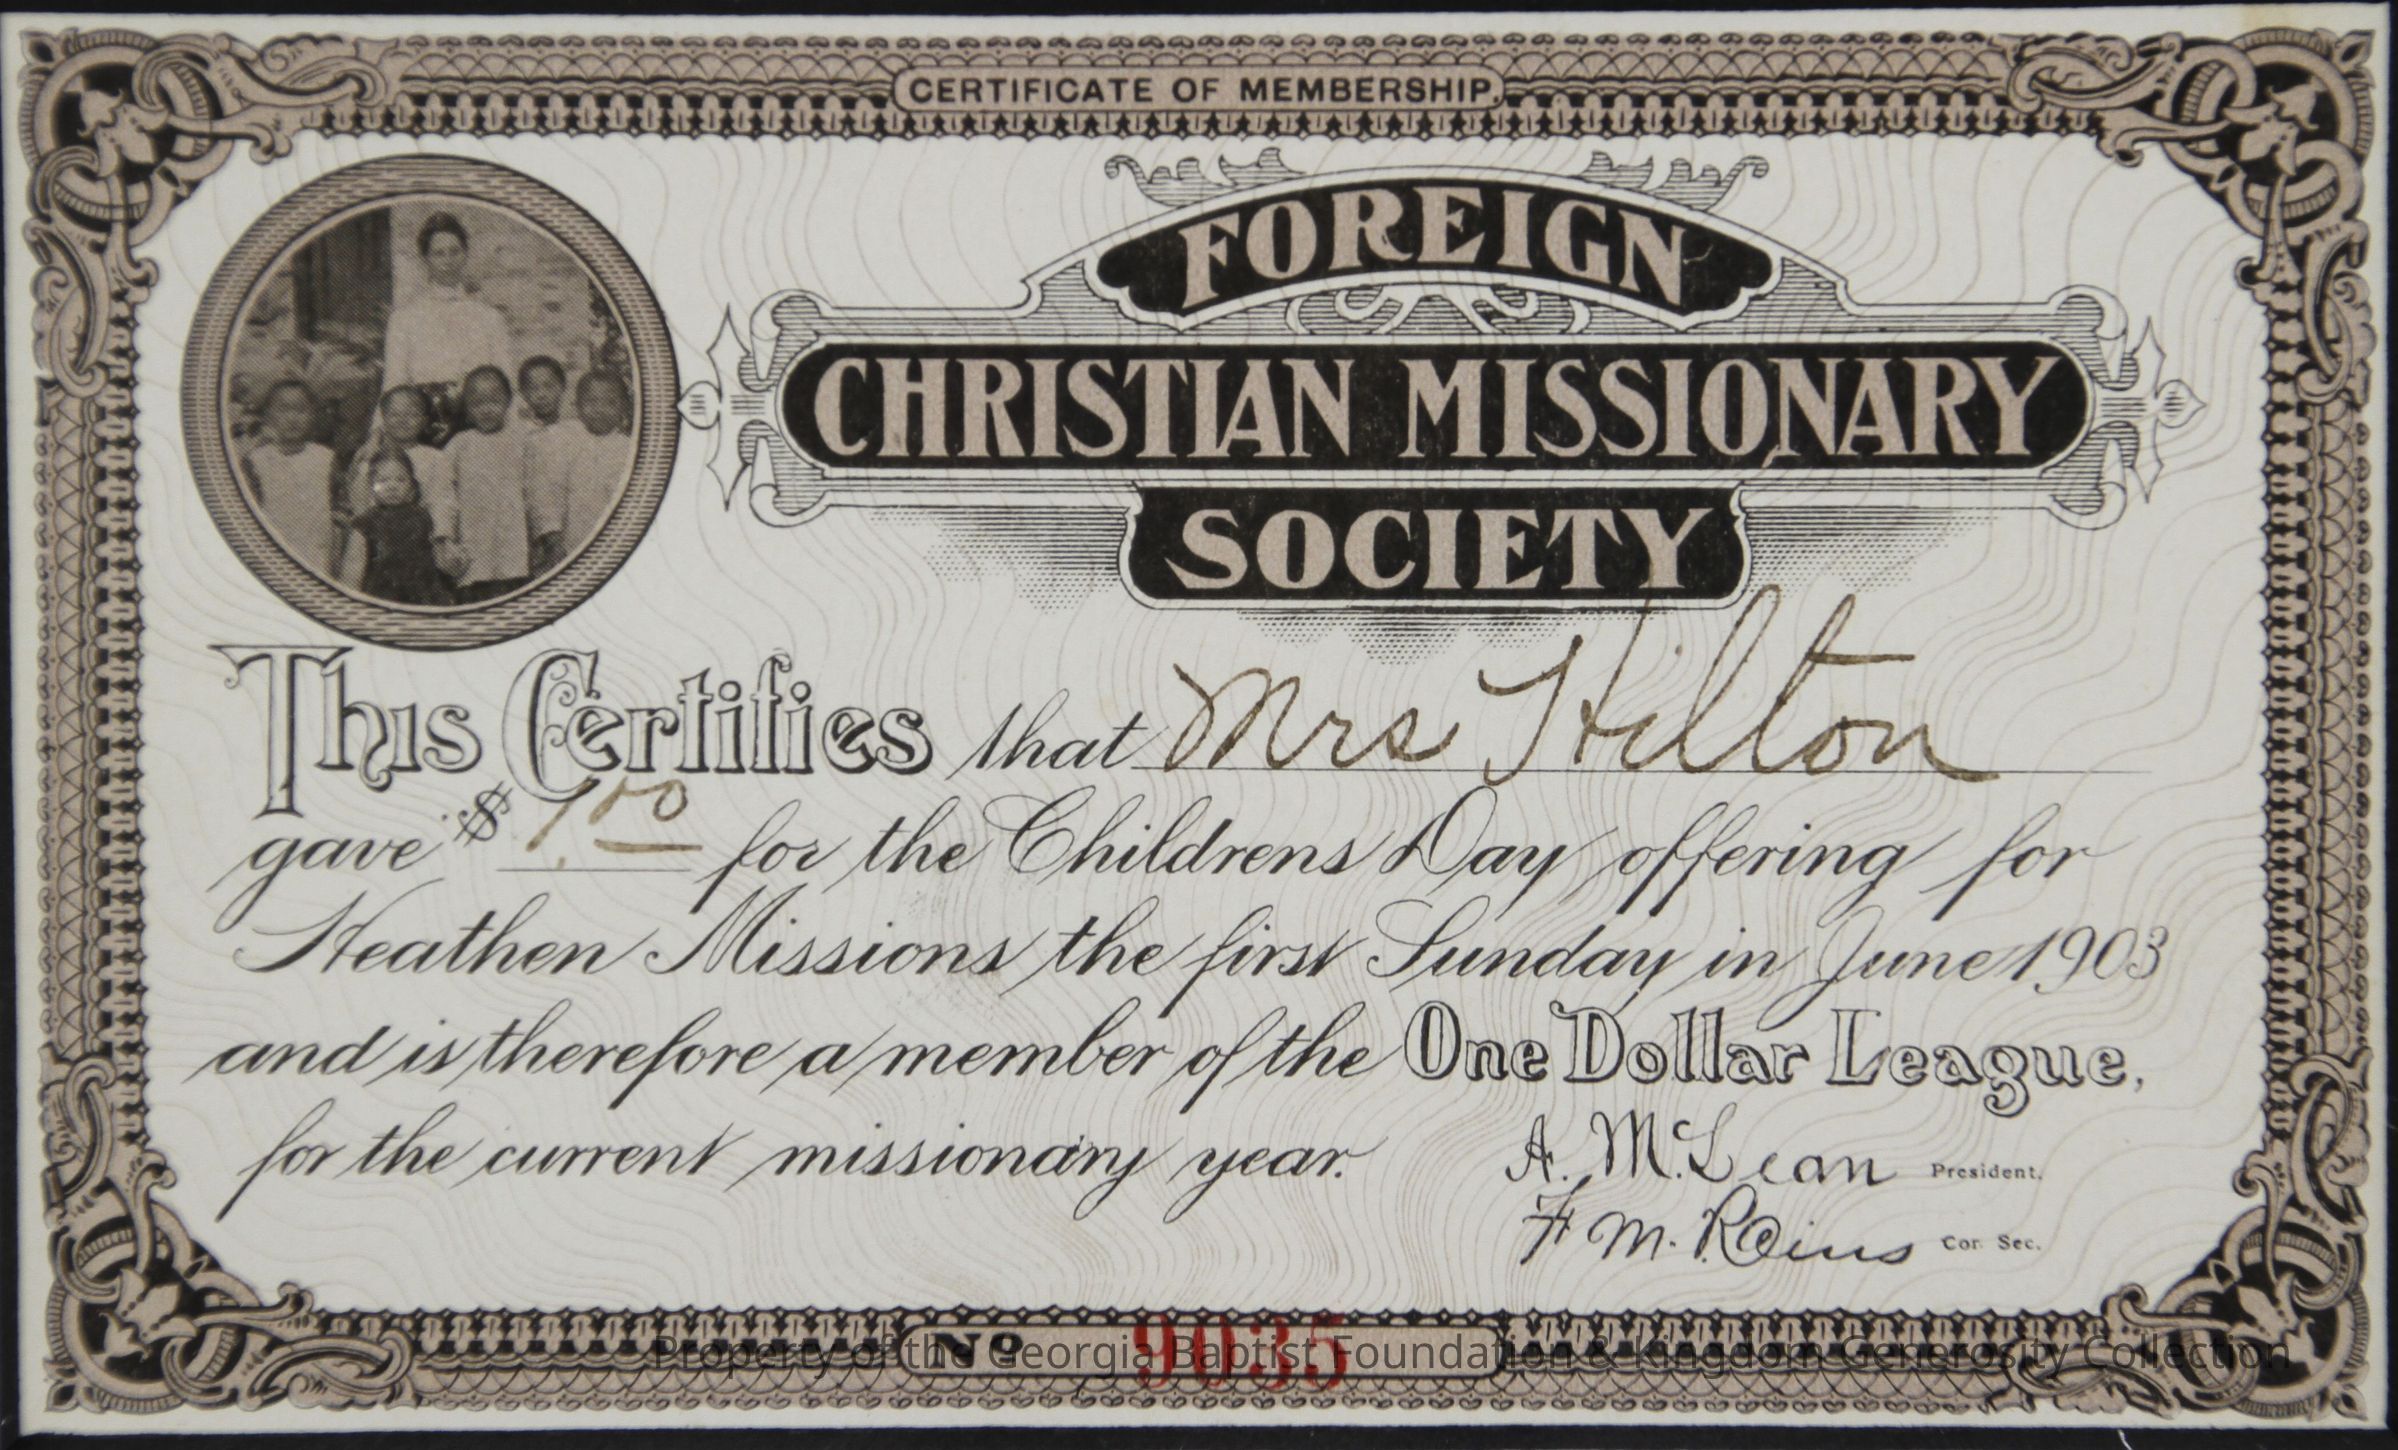 CERTIFICATE OF MEMBERSHIP.
FOREIGN
CHRISTIAN MISSIONARY
SOCIETY
This Certifies that Mrs Hilton
gave $ 1.00 for the Childrens Day offering for
Heathen Missions the first Sunday in June 1903
and is therefore a member of the One Dollar League,
for the current missionary year.
A. McLean President.
F. M. Rains Cor. Sec.
No 9035
Property of the Georgia Baptist Foundation & Kingdom Generosity Collection